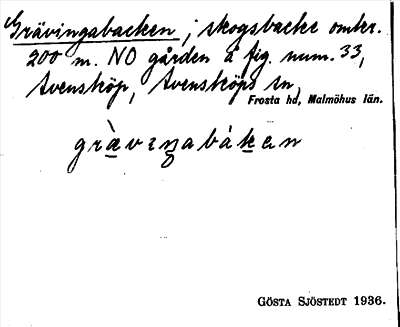 Grävingabacken; skogsbacke omkr.
200 m. NO gården å fig. num. 33,
Svensköp, Svensköps sn,
Frosta hd, Malmöhus län.
GÖSTA SJÖSTEDT 1936.